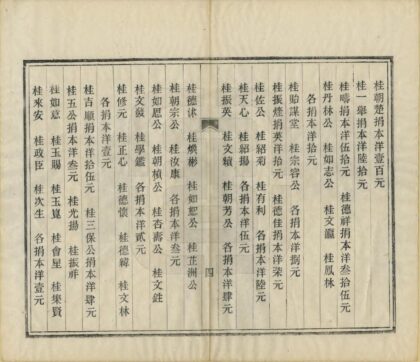 桂朝楚捐本洋壹百元
桂一舉捐本洋陸拾元
桂疇捐本洋伍拾元 桂德祥捐本洋叁拾伍元
桂丹林公 桂如志公 桂文瀧 桂鳳林
各捐本洋拾元
桂貽謀堂 桂宗容公 各捐本洋捌元
桂振 捐英洋拾元 桂德佳捐本洋柒元
桂佐公 桂紹菊 桂有利 各捐本洋陸元
桂天心 桂紹揚 各捐本洋伍元
桂振英 桂文 桂朝芳公 各捐本洋肆元
四
桂德 桂煥彬 桂如恕公 桂芷洲公
桂朝宗公 桂汝康 各捐本洋叁元
桂如恩公 桂朝楨公 桂杏壽公 桂文
桂文發 桂學鑑 各捐本洋貳元
桂修元 桂正心 桂德懷 桂德禕 桂文林
各捐本洋壹元
桂吉順捐本洋拾伍元 桂三保公捐本洋肆元
桂五公捐本洋叁元 桂光揚 桂振祥
桂如意 桂玉賜 桂玉崑 桂會星 桂集賢
桂來安 桂政臣 桂次生 各捐本洋壹元